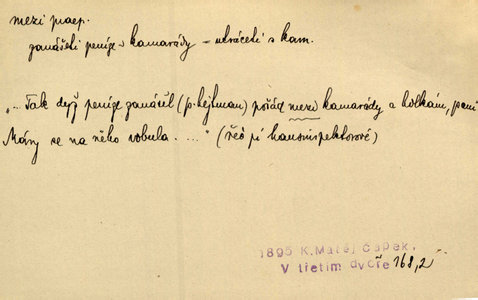 mezi praep.
zanášeti peníze kamarády – utráceti s kam.
„... Tak dyž peníze zanášel (p. hejtman) pořád mezi kamarády a holkám, paní
Máry se na něho vobula. ...“ (řeč pí hausinspektorové)
1895 K. Matěj Čapek,
V třetím dvoře 168,2